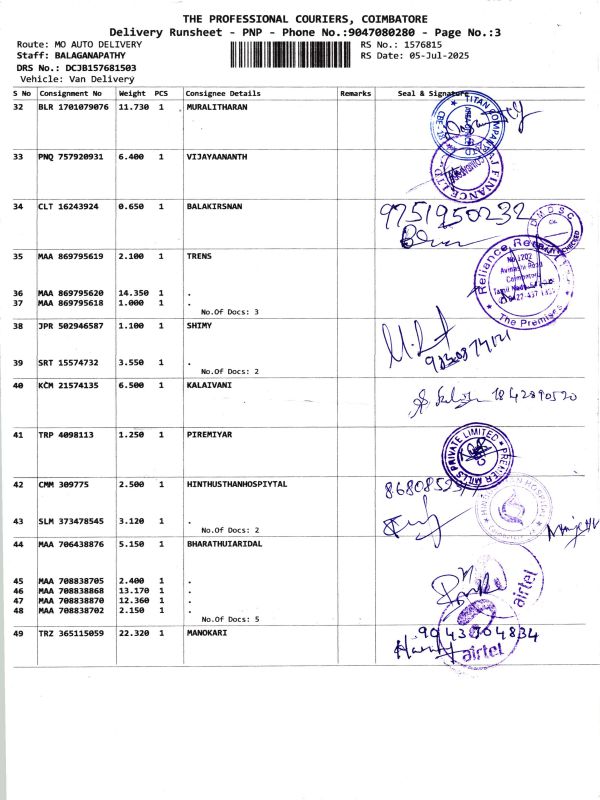 THE PROFESSIONAL COURIERS, COIMBATORE
Delivery Runsheet - PNP - Phone No.:9047080280 - Page No.:3
Route: MO AUTO DELIVERY RS No.: 1576815
Staff: BALAGANAPATHY RS Date: 05-Jul-2025
DRS No.: DCJB157681503
Vehicle: Van Delivery
S No Consignment No Weight PCS Consignee Details Remarks Seal & Signature
32 BLR 1701079076 11.730 1 MURALITHARAN
TITAN COMPANY LTD
33 PNQ 757920931 6.400 1 VIJAYAANANTH
FINANCE LTD
34 CLT 16243924 0.650 1 BALAKIRSNAN 9751950232
DMOSC
35 MAA 869795619 2.100 1 TRENS
Reliance Retail
No.1202
Avinashi Road
Coimbatore
The Premises
36 MAA 869795620 14.350 1 .
37 MAA 869795618 1.000 1 .
No.Of Docs: 3
38 JPR 502946587 1.100 1 SHIMY
39 SRT 15574732 3.550 1 .
No.Of Docs: 2
40 KCM 21574135 6.500 1 KALAIVANI
41 TRP 4098113 1.250 1 PIREMIYAR
PREMIER MILLS PRIVATE LIMITED
42 CMM 309775 2.500 1 HINTHUSTHANHOSPIYTAL
HOSPITAL
43 SLM 373478545 3.120 1 .
No.Of Docs: 2
44 MAA 706438876 5.150 1 BHARATHUIARIDAL
45 MAA 708838705 2.400 1 .
46 MAA 708838868 13.170 1 .
47 MAA 708838870 12.360 1 .
48 MAA 708838702 2.150 1 .
No.Of Docs: 5
airtel
49 TRZ 365115059 22.320 1 MANOKARI 9043704834
airtel